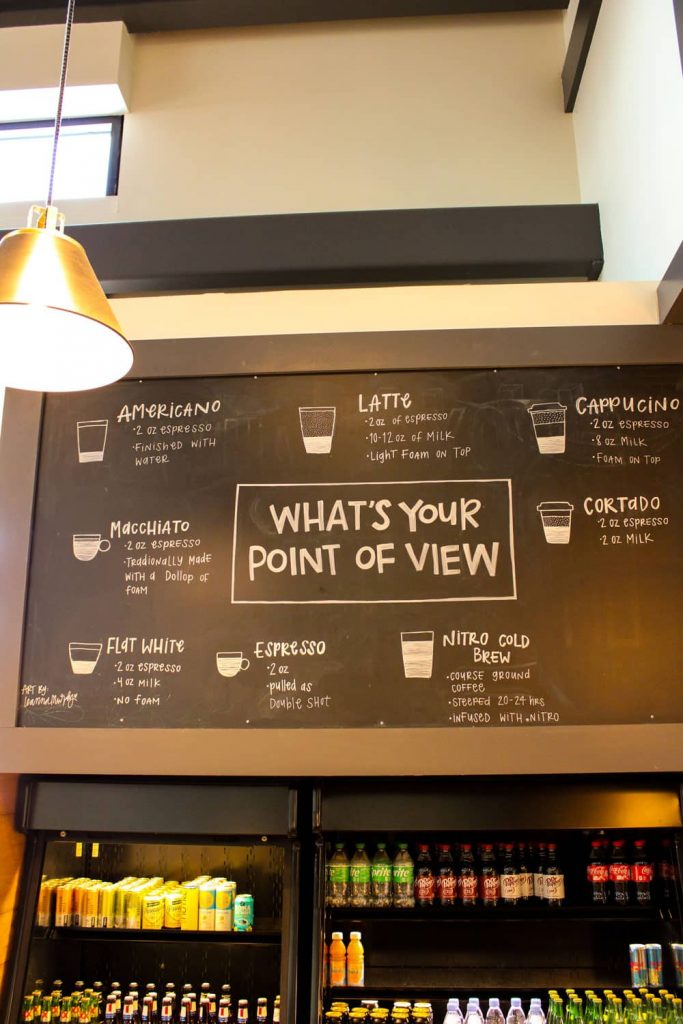 AMERICANO
·2 oz espresso
·Finished with
water
LATTE
·2 oz of espresso
·10-12 oz of Milk
·Light Foam on Top
CAPPUCINO
·2 oz espresso
·8 oz Milk
·Foam on Top
MACCHIATO
·2 oz espresso
·Tradionally Made
with a Dollop of
foam
WHAT'S YOUR
POINT OF VIEW
CORTADO
·2 oz espresso
·2 oz Milk
FLAT WHITE
·2 oz espresso
·4 oz Milk
·No foam
ESPRESSO
·2 oz
·pulled as
Double Shot
NITRO COLD
BREW
·Course ground
coffee
·Steeped 20-24 hrs
·Infused with Nitro
Art By:
Sprite